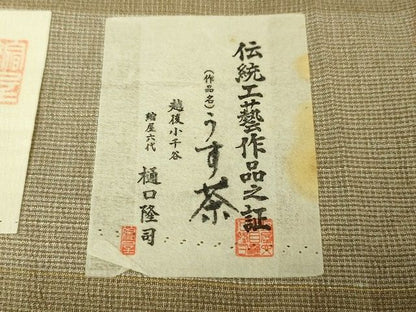 伝統工藝作品之証
(作品名)うす茶
越後小千谷
紬屋六代
樋口隆司